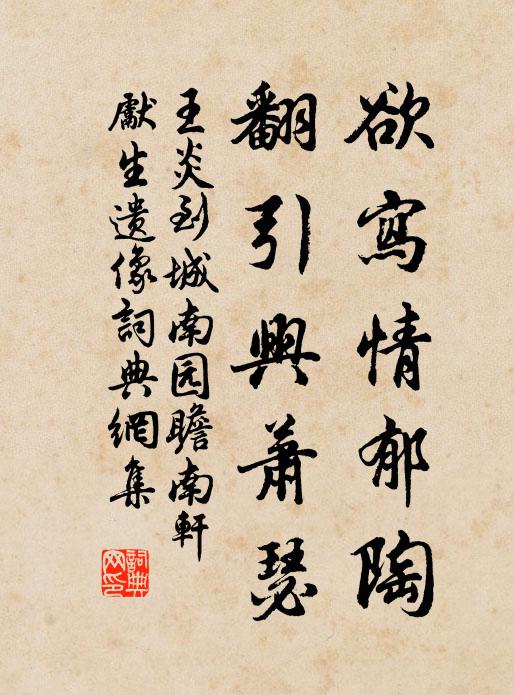 欲寫情郁陶
翻引興蕭瑟
王炎到城南园瞻南軒
獻生遗像詞典網集
詞典网印